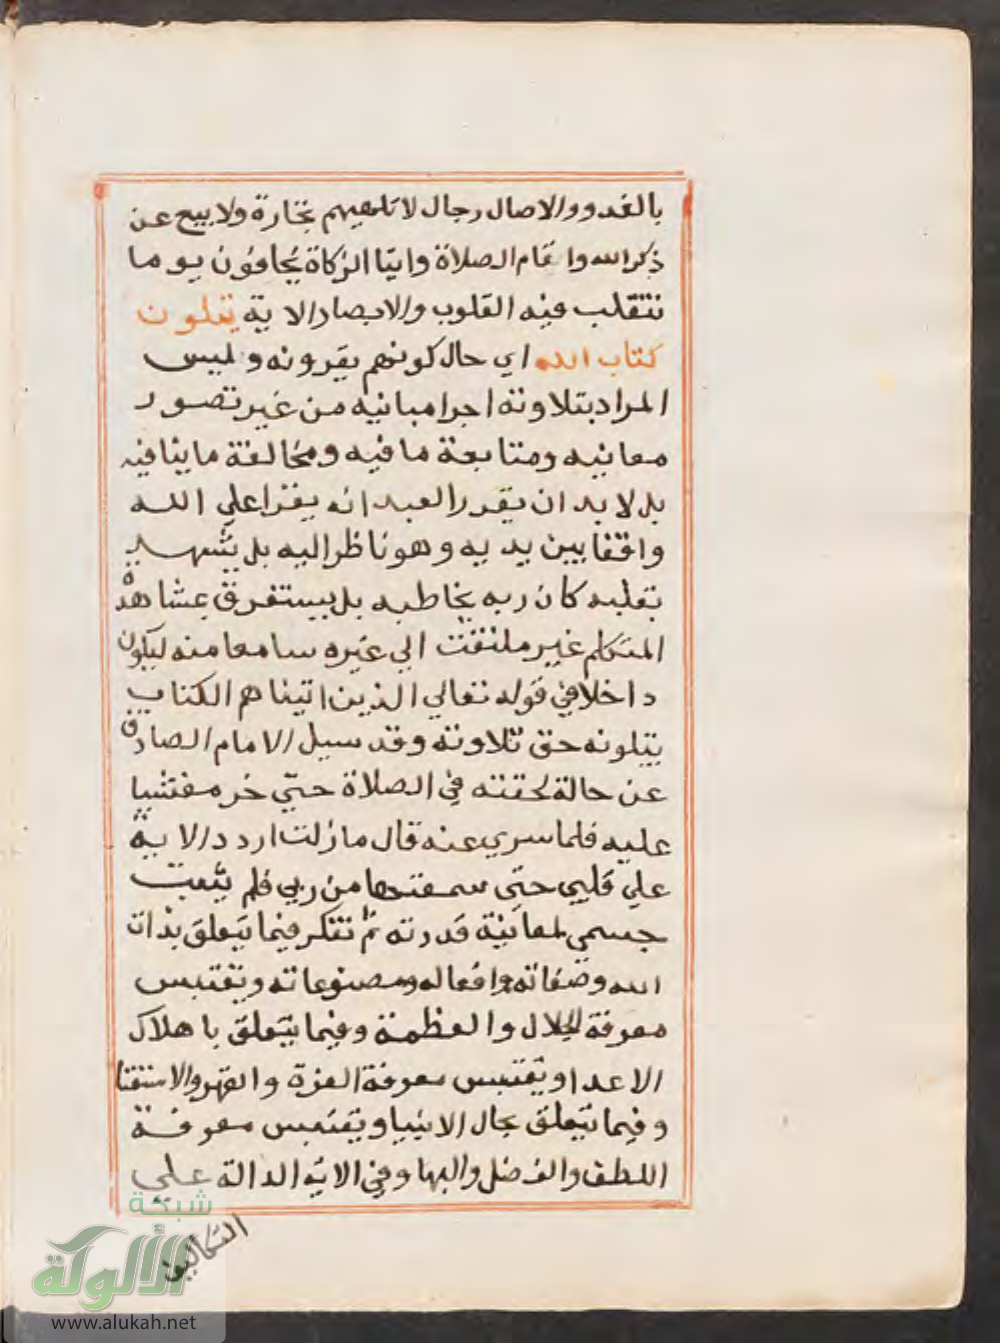 بالغدو والاصال رجال لا تلهيهم تجارة ولا بيع عن
ذكر الله واقام الصلاة وايتا الزكاة يخافون يوما
تتقلب فيه القلوب والابصار الاية يتلون
كتاب الله اي حال كونهم يقرونه وليس
المراد بتلاوته اجرا مبانيه من غير تصور
معانيه ومتابعة ما فيه ومخالفة ما ينافيه
بل لا بد ان يقدر العبد انه يقرا علي الله
واقفا بين يديه وهو ناظر اليه بل يشهد
بقلبه كان ربه يخاطبه بل يستغرق بمشاهدة
المتكلم غير ملتفت الي غيره سامعا منه ليكون
داخلا في قوله تعالي الذين اتيناهم الكتاب
يتلونه حق تلاوته وقد سيل الامام الصادق
عن حالة لحقته في الصلاة حتي خر مغشيا
عليه فلما سري عنه قال مازلت اردد الاية
علي قلبي حتي سمعتها من ربي فلم يثبت
جسمي لمعاينة قدرته ثم تتفكر فيما يتعلق بذات
الله وصفاته وافعاله ومصنوعاته ويقتبس
معرفة الجلال والعظمة وفيما يتعلق باهلاك
الاعدا ويقتبس معرفة العزة والقهر والاستغنا
وفيما يتعلق بحال الانبيا ويقتبس معرفة
اللطف والفضل والبها وفي الاية الدالة علي
التكاليف
شبكة
الألوكة
www.alukah.net